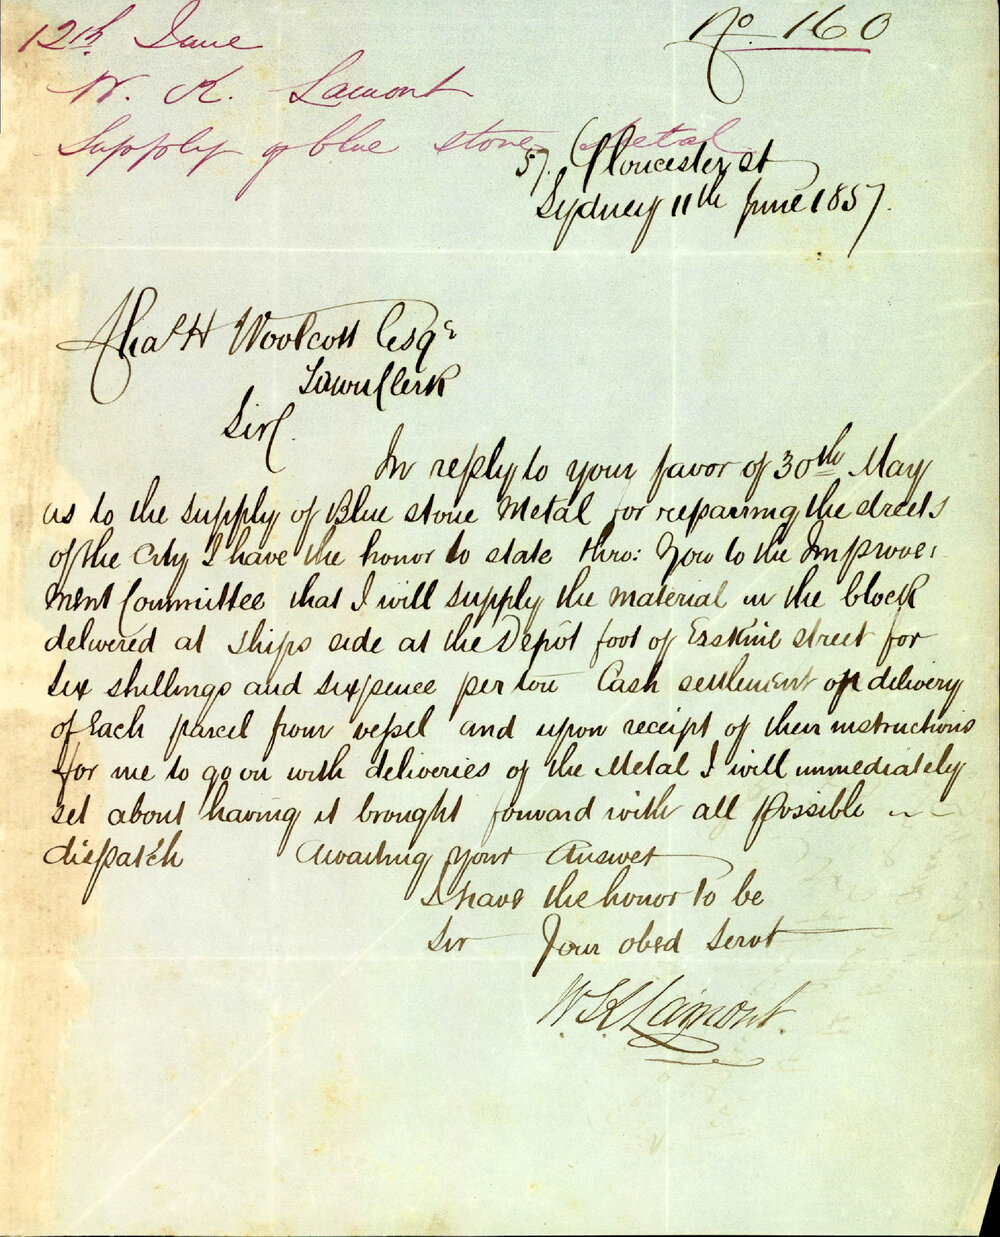 12th June
No. 160
W. K. Lamont
Supply of blue stone metal
57. Gloucester st
Sydney 11th June 1857.
Chas H Woolcott Esqr
Town Clerk
Sir
In reply to your favor of 30th May
as to the supply of Blue stone Metal for repairing the streets
of the City I have the honor to state thro: You to the Improve=
ment Committee that I will supply the material in the block
delivered at ships side at the Depôt foot of Erskine street for
six shillings and sixpence per ton Cash settlement on delivery
of Each parcel from vessel and upon receipt of their instructions
for me to go on with deliveries of the Metal I will immediately
set about having it brought forward with all possible
dispatch Awaiting your Answer
I have the honor to be
Sir Your obed Servt
W. K Lamont.